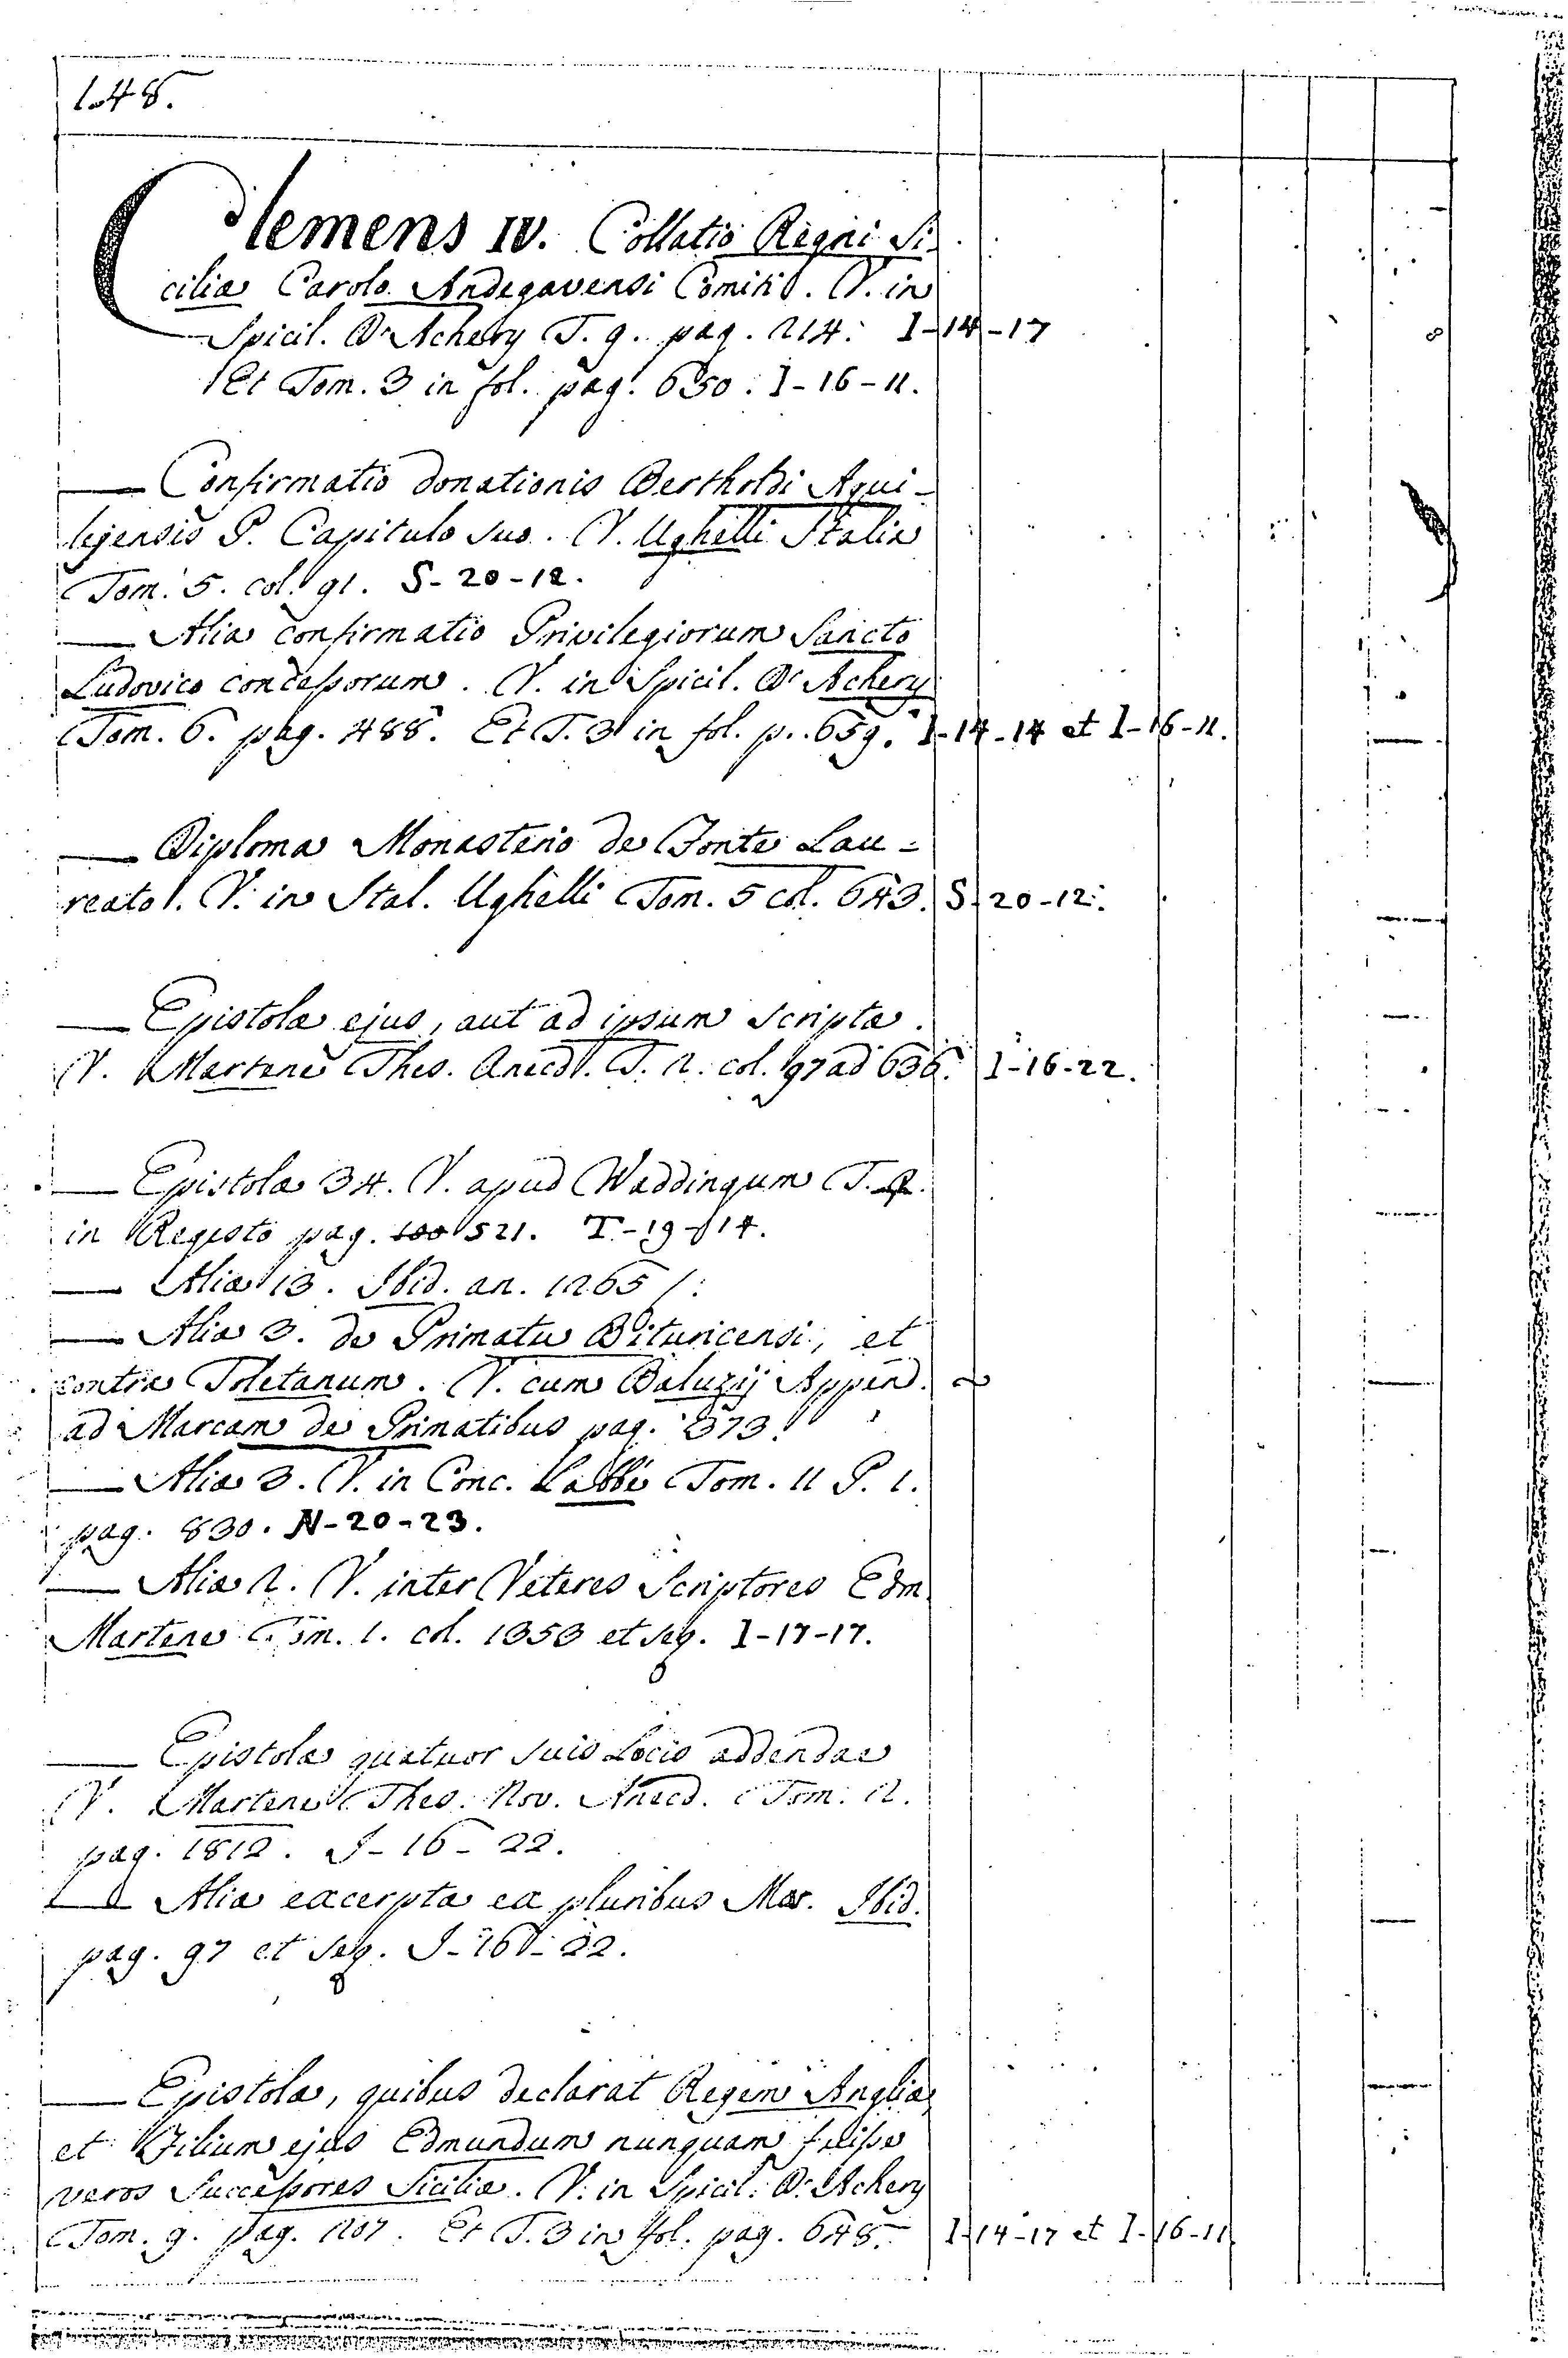 148.
Clemens IV. Collatio Regni Si
ciliæ Carolo Andegavensi Comiti. V. in
Spicil. D'Achery T. 9. pag. 214. I-14-17
Et Tom. 3 in fol. pag. 650. I-16-11.
— Confirmatio donationis Bertholdi Aqui-
lejensis P. Capitulo suo. V. Ughelli Italia
Tom. 5. col. 91. S-20-12.
— Alia confirmatio Privilegiorum Sancto
Ludovico concessorum. V. in Spicil. D'Achery
Tom. 6. pag. 488. Et T. 3 in fol. p. 659. I-14-14 et I-16-11.
— Diploma Monasterio de Fonte Lau-
reato. V. in Ital. Ughelli Tom. 5 col. 643. S 20-12.
— Epistolæ ejus, aut ad ipsum scriptæ.
V. Martene Thes. Anecd. T. 2. col. 97 ad 636. I-16-22.
— Epistolæ 34. V. apud Waddingum T. 2.
in Regesto pag. 521. T-19-14.
— Aliæ 13. Ibid. an. 1265.
— Aliæ 3. de Primatu Bituricensi, et
contra Toletanum. V. cum Baluzij Append.
ad Marcam de Primatibus pag. 373.
— Aliæ 3. V. in Conc. Labbe Tom. 11 P. 1.
pag. 830. N-20-23.
— Aliæ 2. V. inter Veteres Scriptores Edm.
Martene Tom. 1. col. 1353 et seq. I-17-17.
— Epistolæ quatuor suis Locis addendae
V. Martene Thes. Nov. Anecd. Tom. 2.
pag. 1812. I-16-22.
— Aliæ excerptæ ex pluribus Mss. Ibid.
pag. 97 et seq. I-16-22.
— Epistolæ, quibus declarat Regem Angliæ,
et Filium ejus Edmundum nunquam fuisse
veros Successores Siciliæ. V. in Spicil. D'Achery
Tom. 9. pag. 207. Et T. 3 in fol. pag. 648. I-14-17 et I-16-11